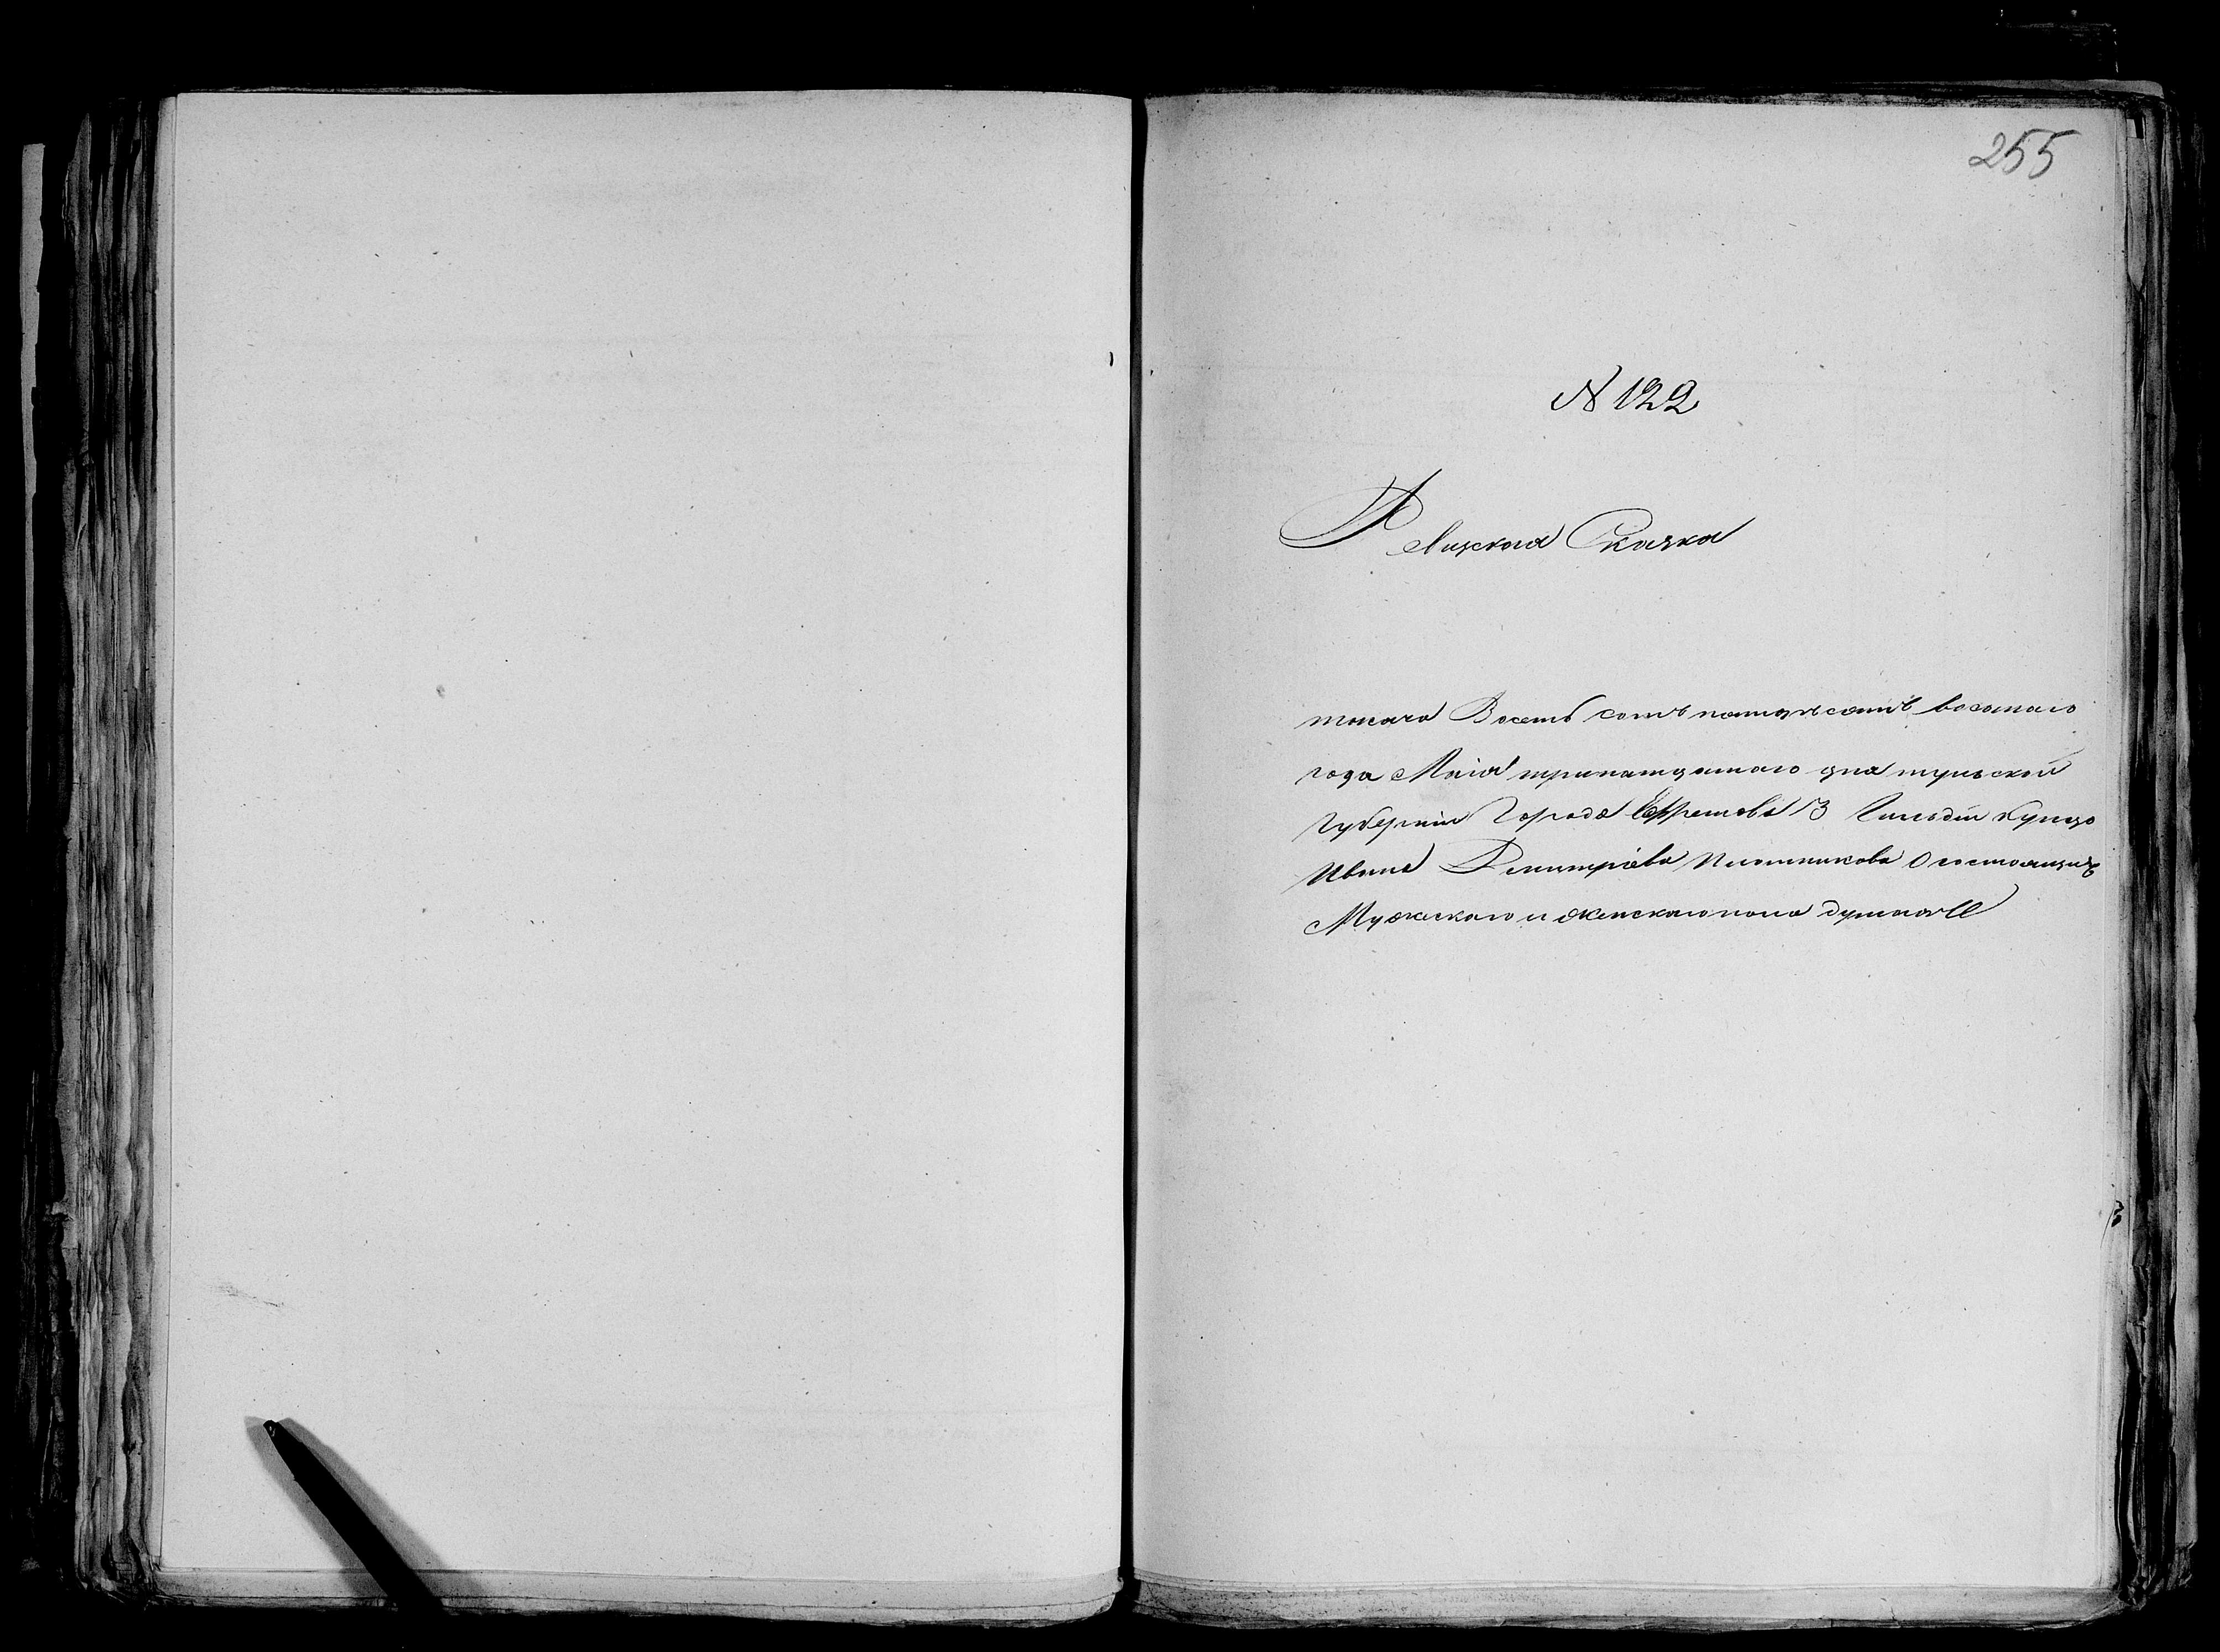 255
№ 122
Ревизская Сказка
тысяча Восемь сотъ пятдесятъ восмаго
года Маія тринатцатаго дня тульской
Губерніи Города Ефремова 3 Гильдіи купца
Ивана Дмитріева Плотникова О состоящихъ
Мужескаго и женскаго пола душахъ